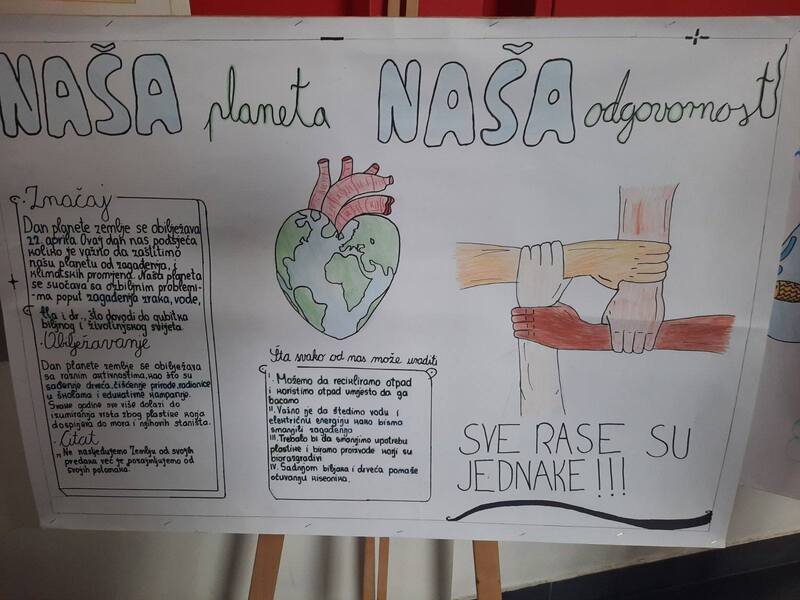 NAŠA planeta NAŠA odgovornost
Značaj
Dan planete zemlje se obilježava
22. aprila. Ovaj dan nas podsjeća
koliko je važno da zaštitimo
našu planetu od zagađenja i
klimatskih promjena. Naša planeta
se suočava sa ozbiljnim problemi-
-ma poput zagađenja zraka, vode,
tla i dr., što dovodi do gubitka
biljnog i životinjskog svijeta
Obilježavanje
Dan planete zemlje se obilježava
sa raznim aktivnostima, kao što su
sađenje drveća, čišćenje prirode, radionice
u školama i edukativne kampanje.
Svake godine sve više dolazi do
izumiranja vrsta zbog plastike koja
dospijeva do mora i njihovih staništa.
Citat
"Ne nasljeđujemo Zemlju od svojih
predaka već je pozajmljujemo od
svojih potomaka.
Šta svako od nas može uraditi
I. Možemo da recikliramo otpad
i koristimo otpad umjesto da ga
bacamo
II. Važno je da štedimo vodu i
električnu energiju kako bismo
smanjili zagađenje
III. Trebalo bi da smanjimo upotrebu
plastike i biramo proizvode koji su
biorazgradivi
IV. Sadnjom biljaka i drveća pomaže
očuvanju kiseonika.
SVE RASE SU
JEDNAKE!!!